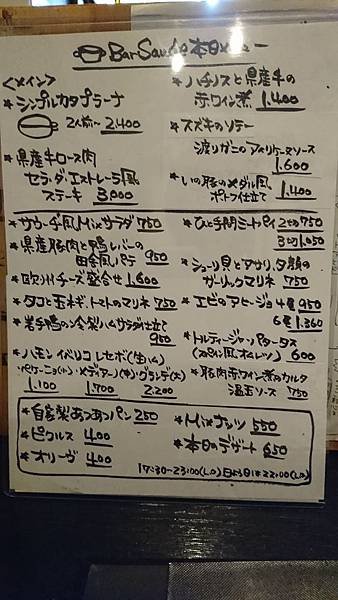 Bar Saude 本日メニュー
<メイン>
* シンプルカタプラーナ
2人前〜 2.400
* 県産牛ロース肉
セラ・ダ・エストレーラ風
ステーキ 3,000
* ハチノスと県産牛の
赤ワイン煮 1.400
* スズキのソテー
渡りガニのアメリケーヌソース
1.600
* いの豚のメダル風
ポルト仕立 1.400
* サウーヂ風Mixサラダ 750
* 県産豚肉と鴨レバーの
田舎風パテ 950
* 欧州チーズ盛合せ 1,600
* タコと玉ネギ、トマトのマリネ 750
* 岩手鴨の冷製ハムサラダ仕立て
950
* ハモン イベリコ レセボ(生ハム)
ペケーニョ(小)・メディアーノ(中)・グランデ(大)
1.100 1.700 2.200
* ひと手間ミートパイ 2切 750
3切 1.050
* ムール貝とアサリ、夕顔の
ガーリックマリネ 750
* エビのアヒージョ 4尾 950
6尾 1.360
* トルティージャ・パタータス
(スペイン風オムレツ) 600
* 豚肉赤ワイン煮のカルタ
温玉ソース 750
* 自家製あつあつパン 250
* ピクルス 400
* オリーヴ 400
* Mixナッツ 550
* 本日のデザート 650
17:30~23:00(L.O) 日よう日は22:00(L.O)